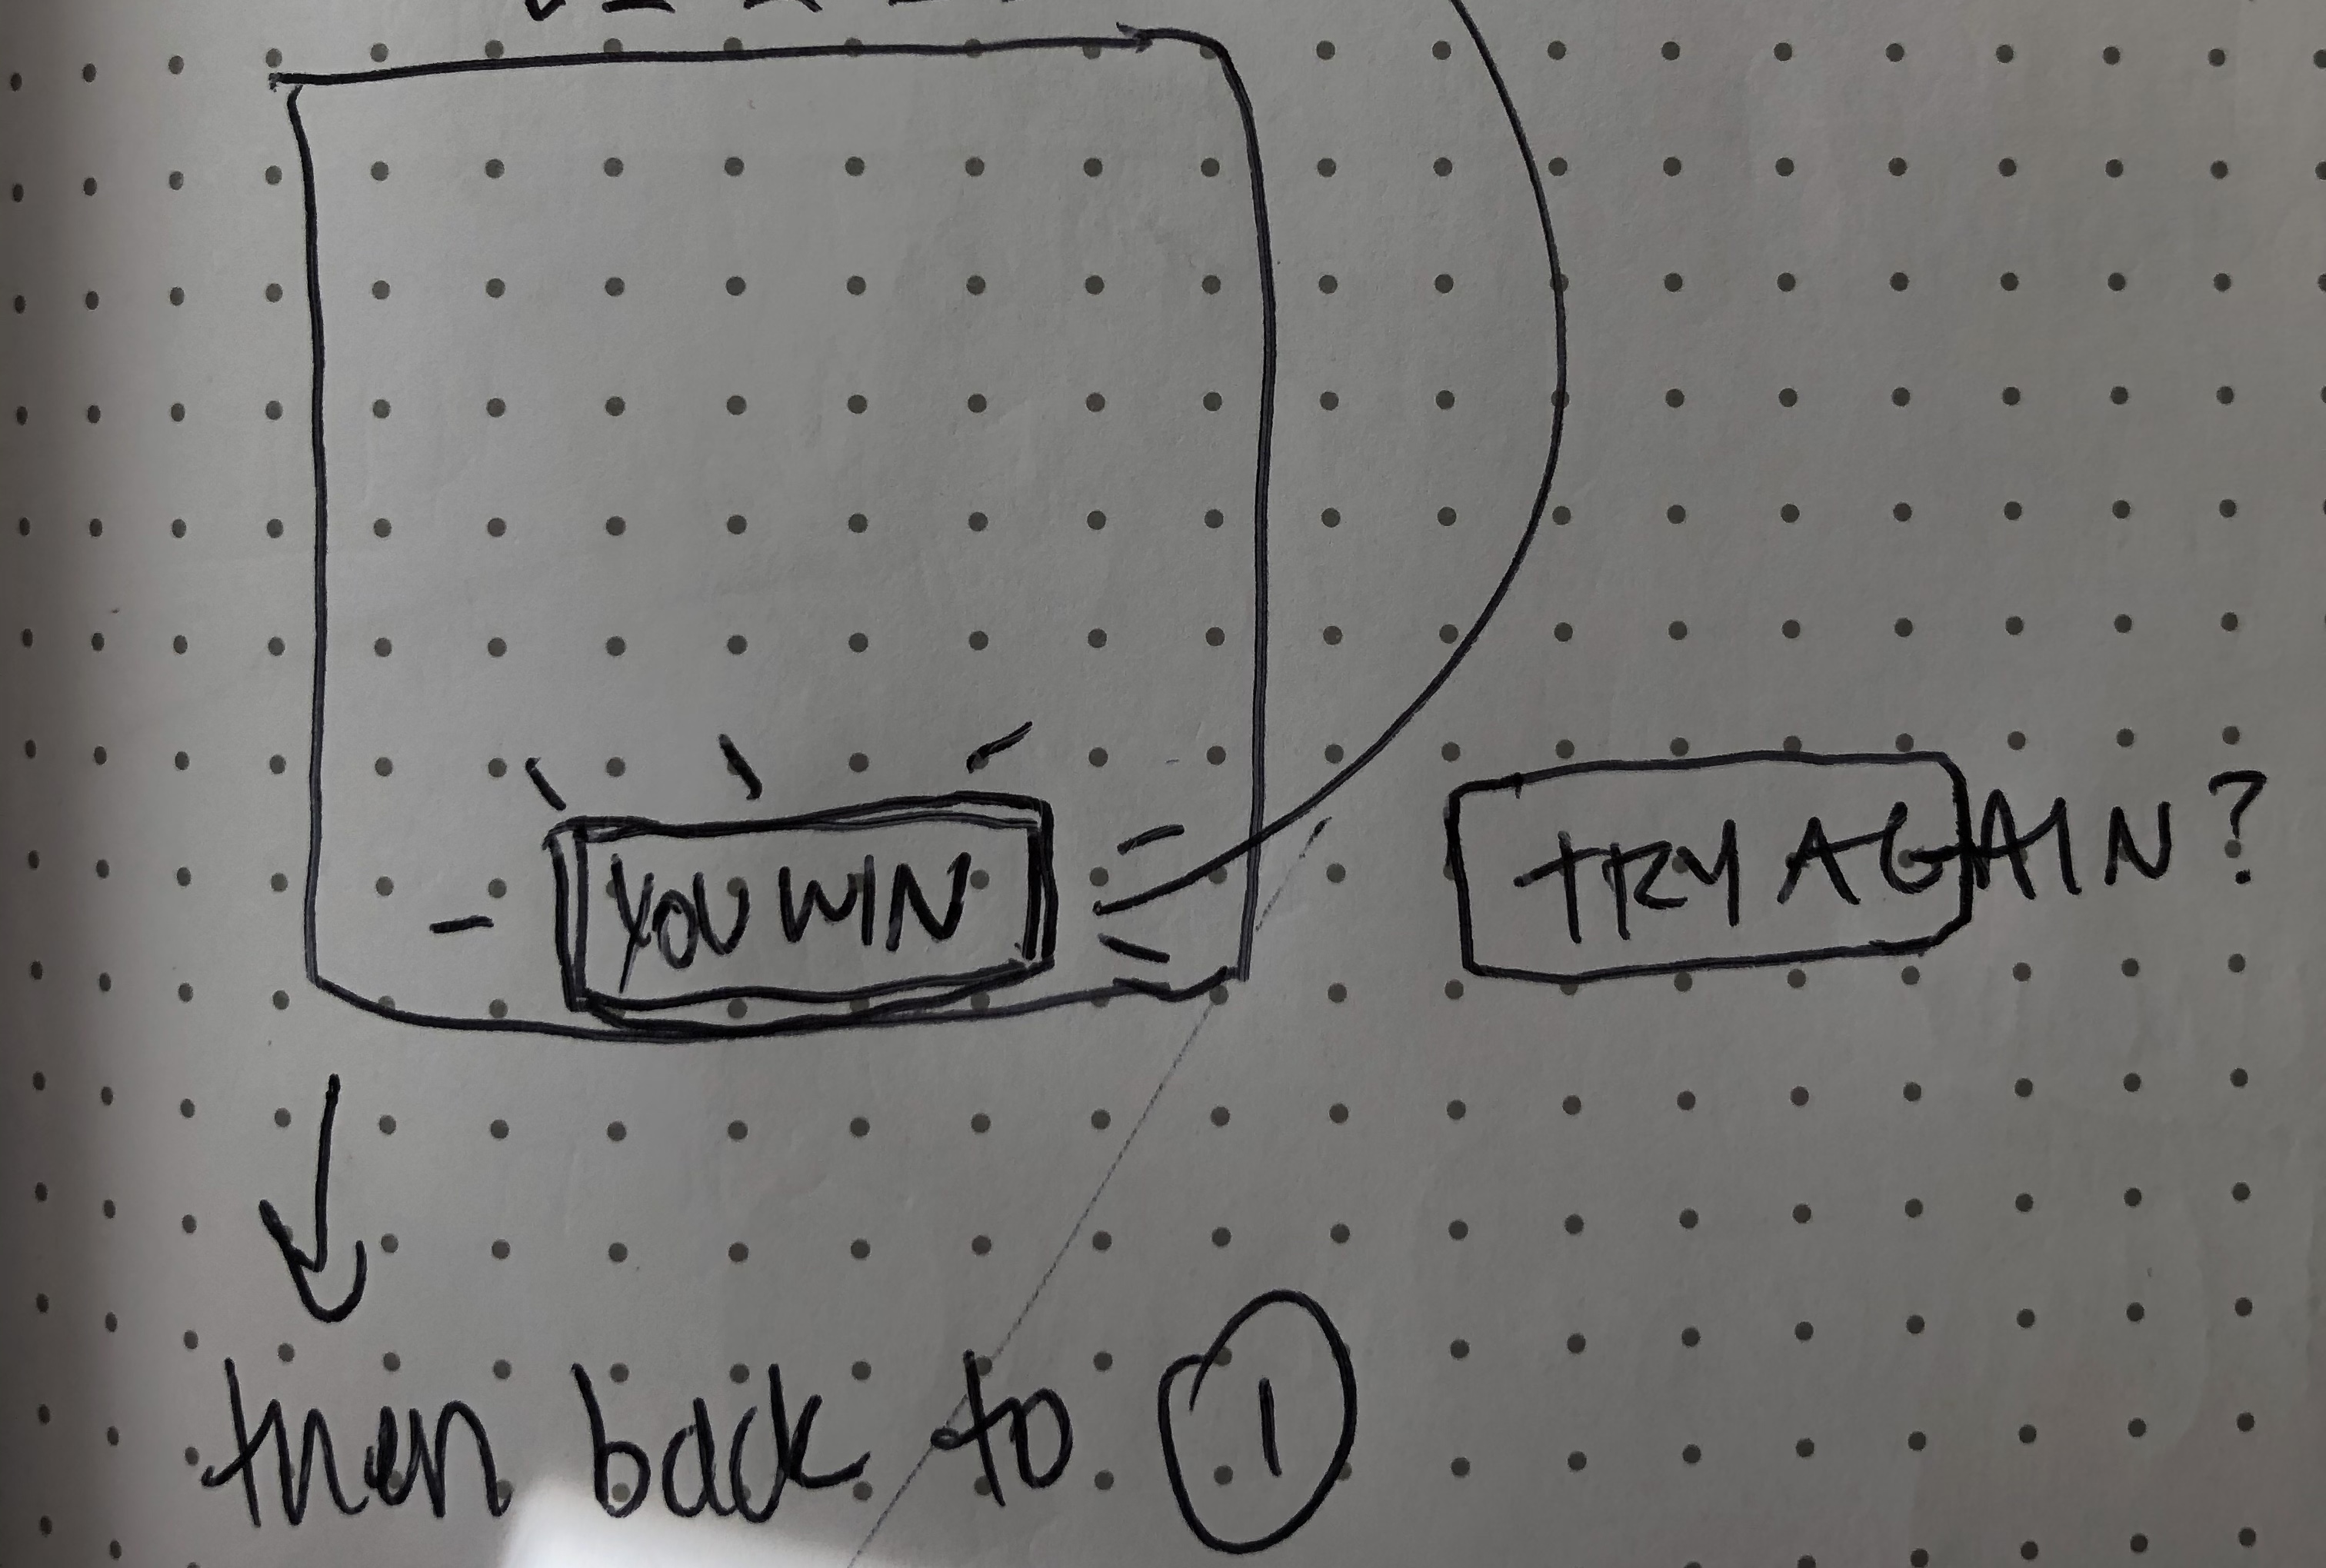 YOU WIN
TRY AGAIN?
then back to 1